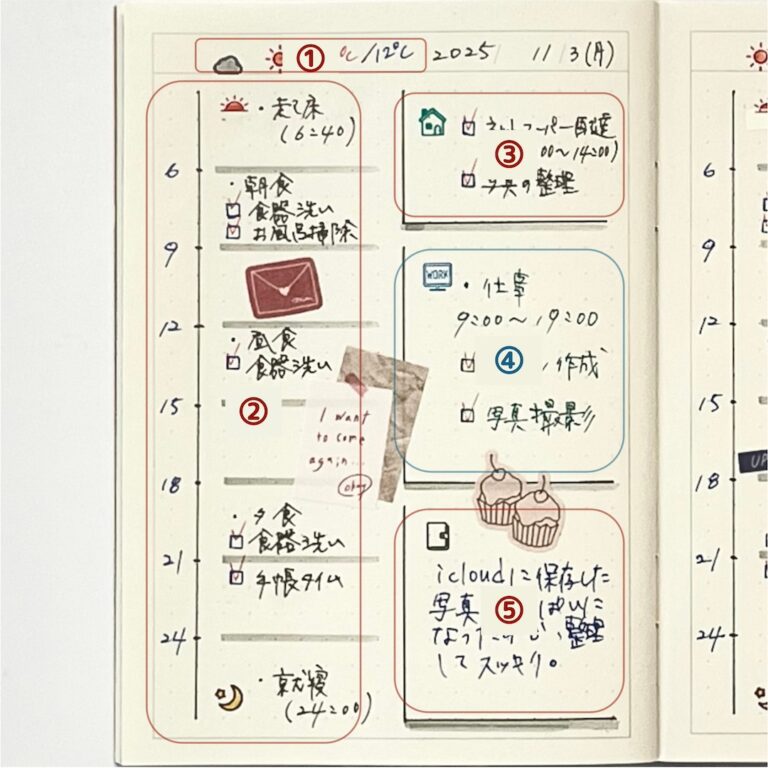 ①
℃/12℃ 2025 11/3(月)
・起床
(6:40)
6
・朝食
食器洗い
お風呂掃除
9
12
・昼食
食器洗い
15
②
I want
to come
again...
okay
18
・夕食
食器洗い
21
手帳タイム
24
・就寝
(24:00)
ネットスーパー配達
③ 00〜14:00)
の整理
WORK
・仕事
9:00〜19:00
④ 作成
写真撮影
icloudに保存した
写真 ⑤ ぱいに
整理
してスッキリ。
6
9
12
15
UP
18
21
24